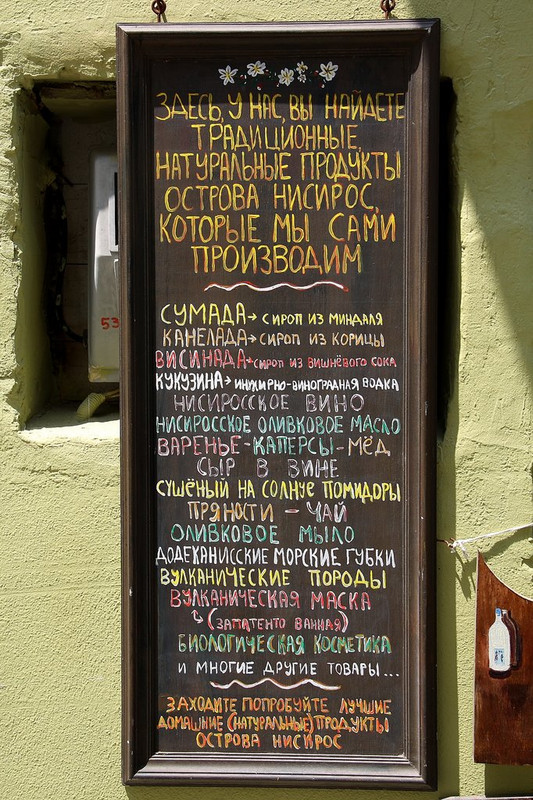 ЗДЕСЬ, У НАС, ВЫ НАЙДЕТЕ
ТРАДИЦИОННЫЕ,
НАТУРАЛЬНЫЕ ПРОДУКТЫ
ОСТРОВА НИСИРОС,
КОТОРЫЕ МЫ САМИ
ПРОИЗВОДИМ
СУМАДА→ СИРОП ИЗ МИНДАЛЯ
КАНЕЛАДА→ СИРОП ИЗ КОРИЦЫ
ВИСИНАДА→СИРОП ИЗ ВИШНЁВОГО СОКА
КУКУЗИНА→ ИНЖИРНО-ВИНОГРАДНАЯ ВОДКА
НИСИРОССКОЕ ВИНО
НИСИРОССКОЕ ОЛИВКОВОЕ МАСЛО
ВАРЕНЬЕ-КАПЕРСЫ-МЁД
СЫР В ВИНЕ
СУШЁНЫЙ НА СОЛНЦЕ ПОМИДОРЫ
ПРЯНОСТИ - ЧАЙ
ОЛИВКОВОЕ МЫЛО
ДОДЕКАНИССКИЕ МОРСКИЕ ГУБКИ
ВУЛКАНИЧЕСКИЕ ПОРОДЫ
ВУЛКАНИЧЕСКАЯ МАСКА
(ЗАПАТЕНТО ВАННАЯ)
БИОЛОГИЧЕСКАЯ КОСМЕТИКА
И МНОГИЕ ДРУГИЕ ТОВАРЫ...
ЗАХОДИТЕ ПОПРОБУЙТЕ ЛУЧШИЕ
ДОМАШНИЕ (НАТУРАЛЬНЫЕ) ПРОДУКТЫ
ОСТРОВА НИСИРОС
53